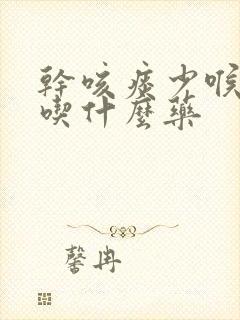 幹咳痰少喉
喫什麼藥
馨冉